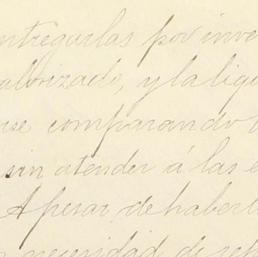 entregarlas por inve
alorizado, y la liqu
rse comparando
sin atender á las e
Apesar de haberl
necesidad de